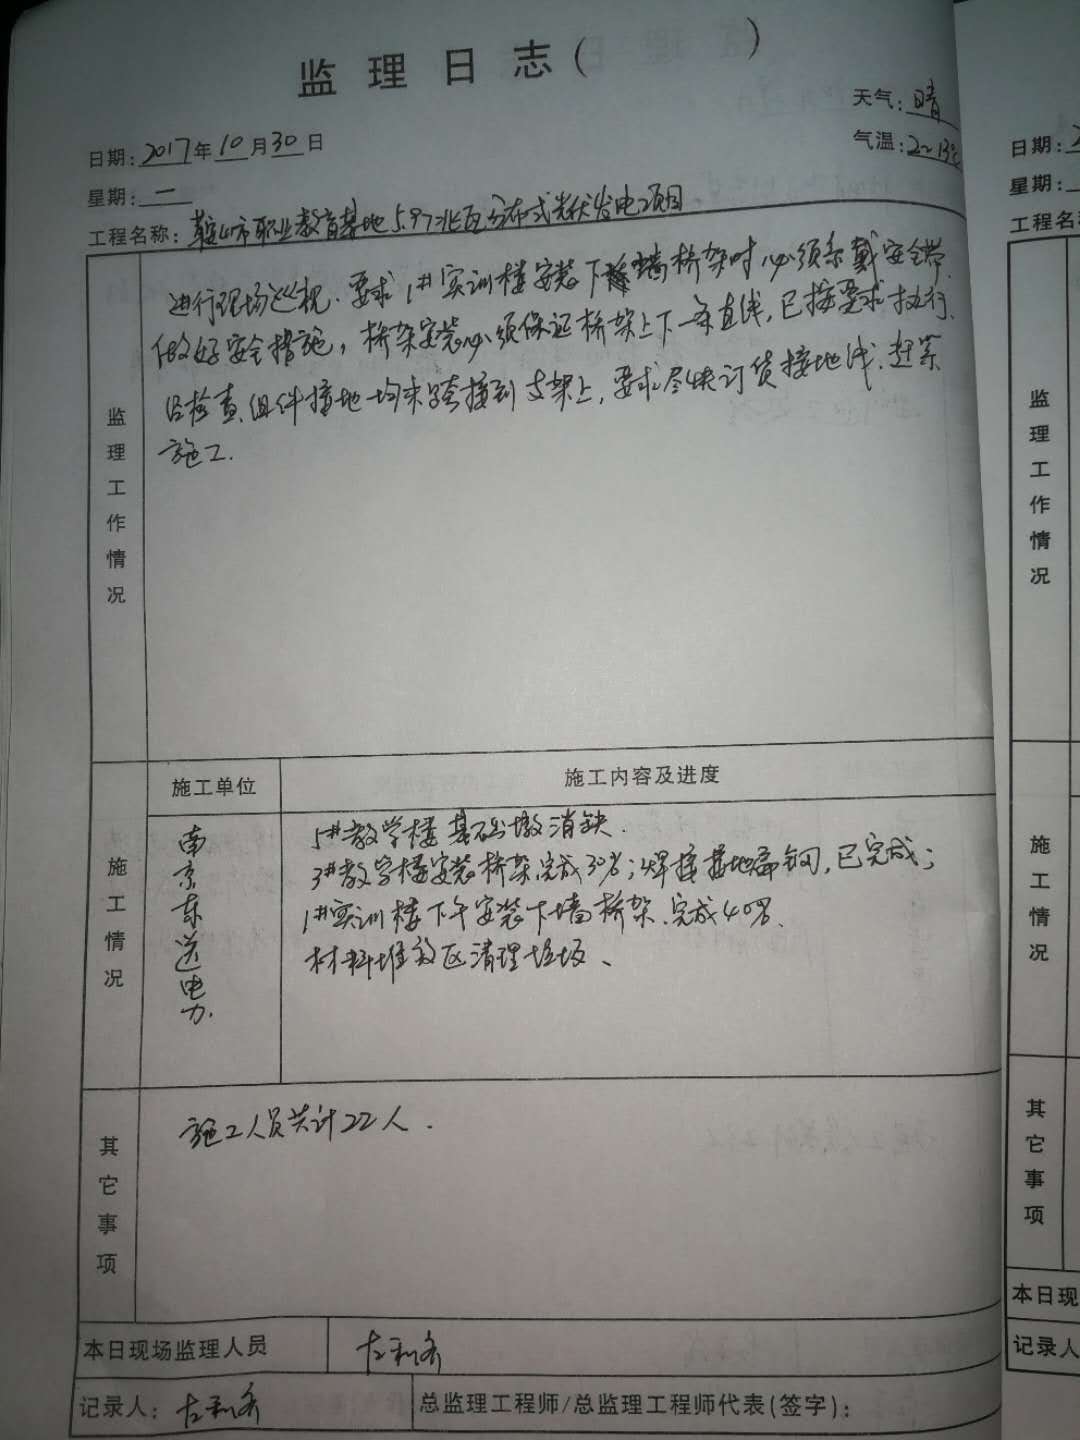 监理日志( )
天气:晴
日期:2017年10月30日
气温:2~13℃
星期:一
工程名称:鞍山市职业教育基地5.97兆瓦分布式光伏发电项目
监理工作情况
进行现场巡视.要求1#实训楼安装下墙桥架时必须系戴安全带.
做好安全措施,桥架安装必须保证桥架上下一条直线,已按要求执行.
经检查,组件接地均未跨接到支架上,要求尽快订货接地线.赶紧
施工.
施工情况
施工单位
施工内容及进度
南京东送电力.
5#教学楼基础墩消缺.
3#教学楼安装桥架完成30%;焊接接地扁钢,已完成;
1#实训楼下午安装下墙桥架.完成40%.
材料堆放区清理垃圾、
其它事项
施工人员共计22人.
本日现场监理人员
记录人:
总监理工程师/总监理工程师代表(签字):
日期:2
星期:
工程名
监理工作情况
施工情况
其它事项
本日现
记录人